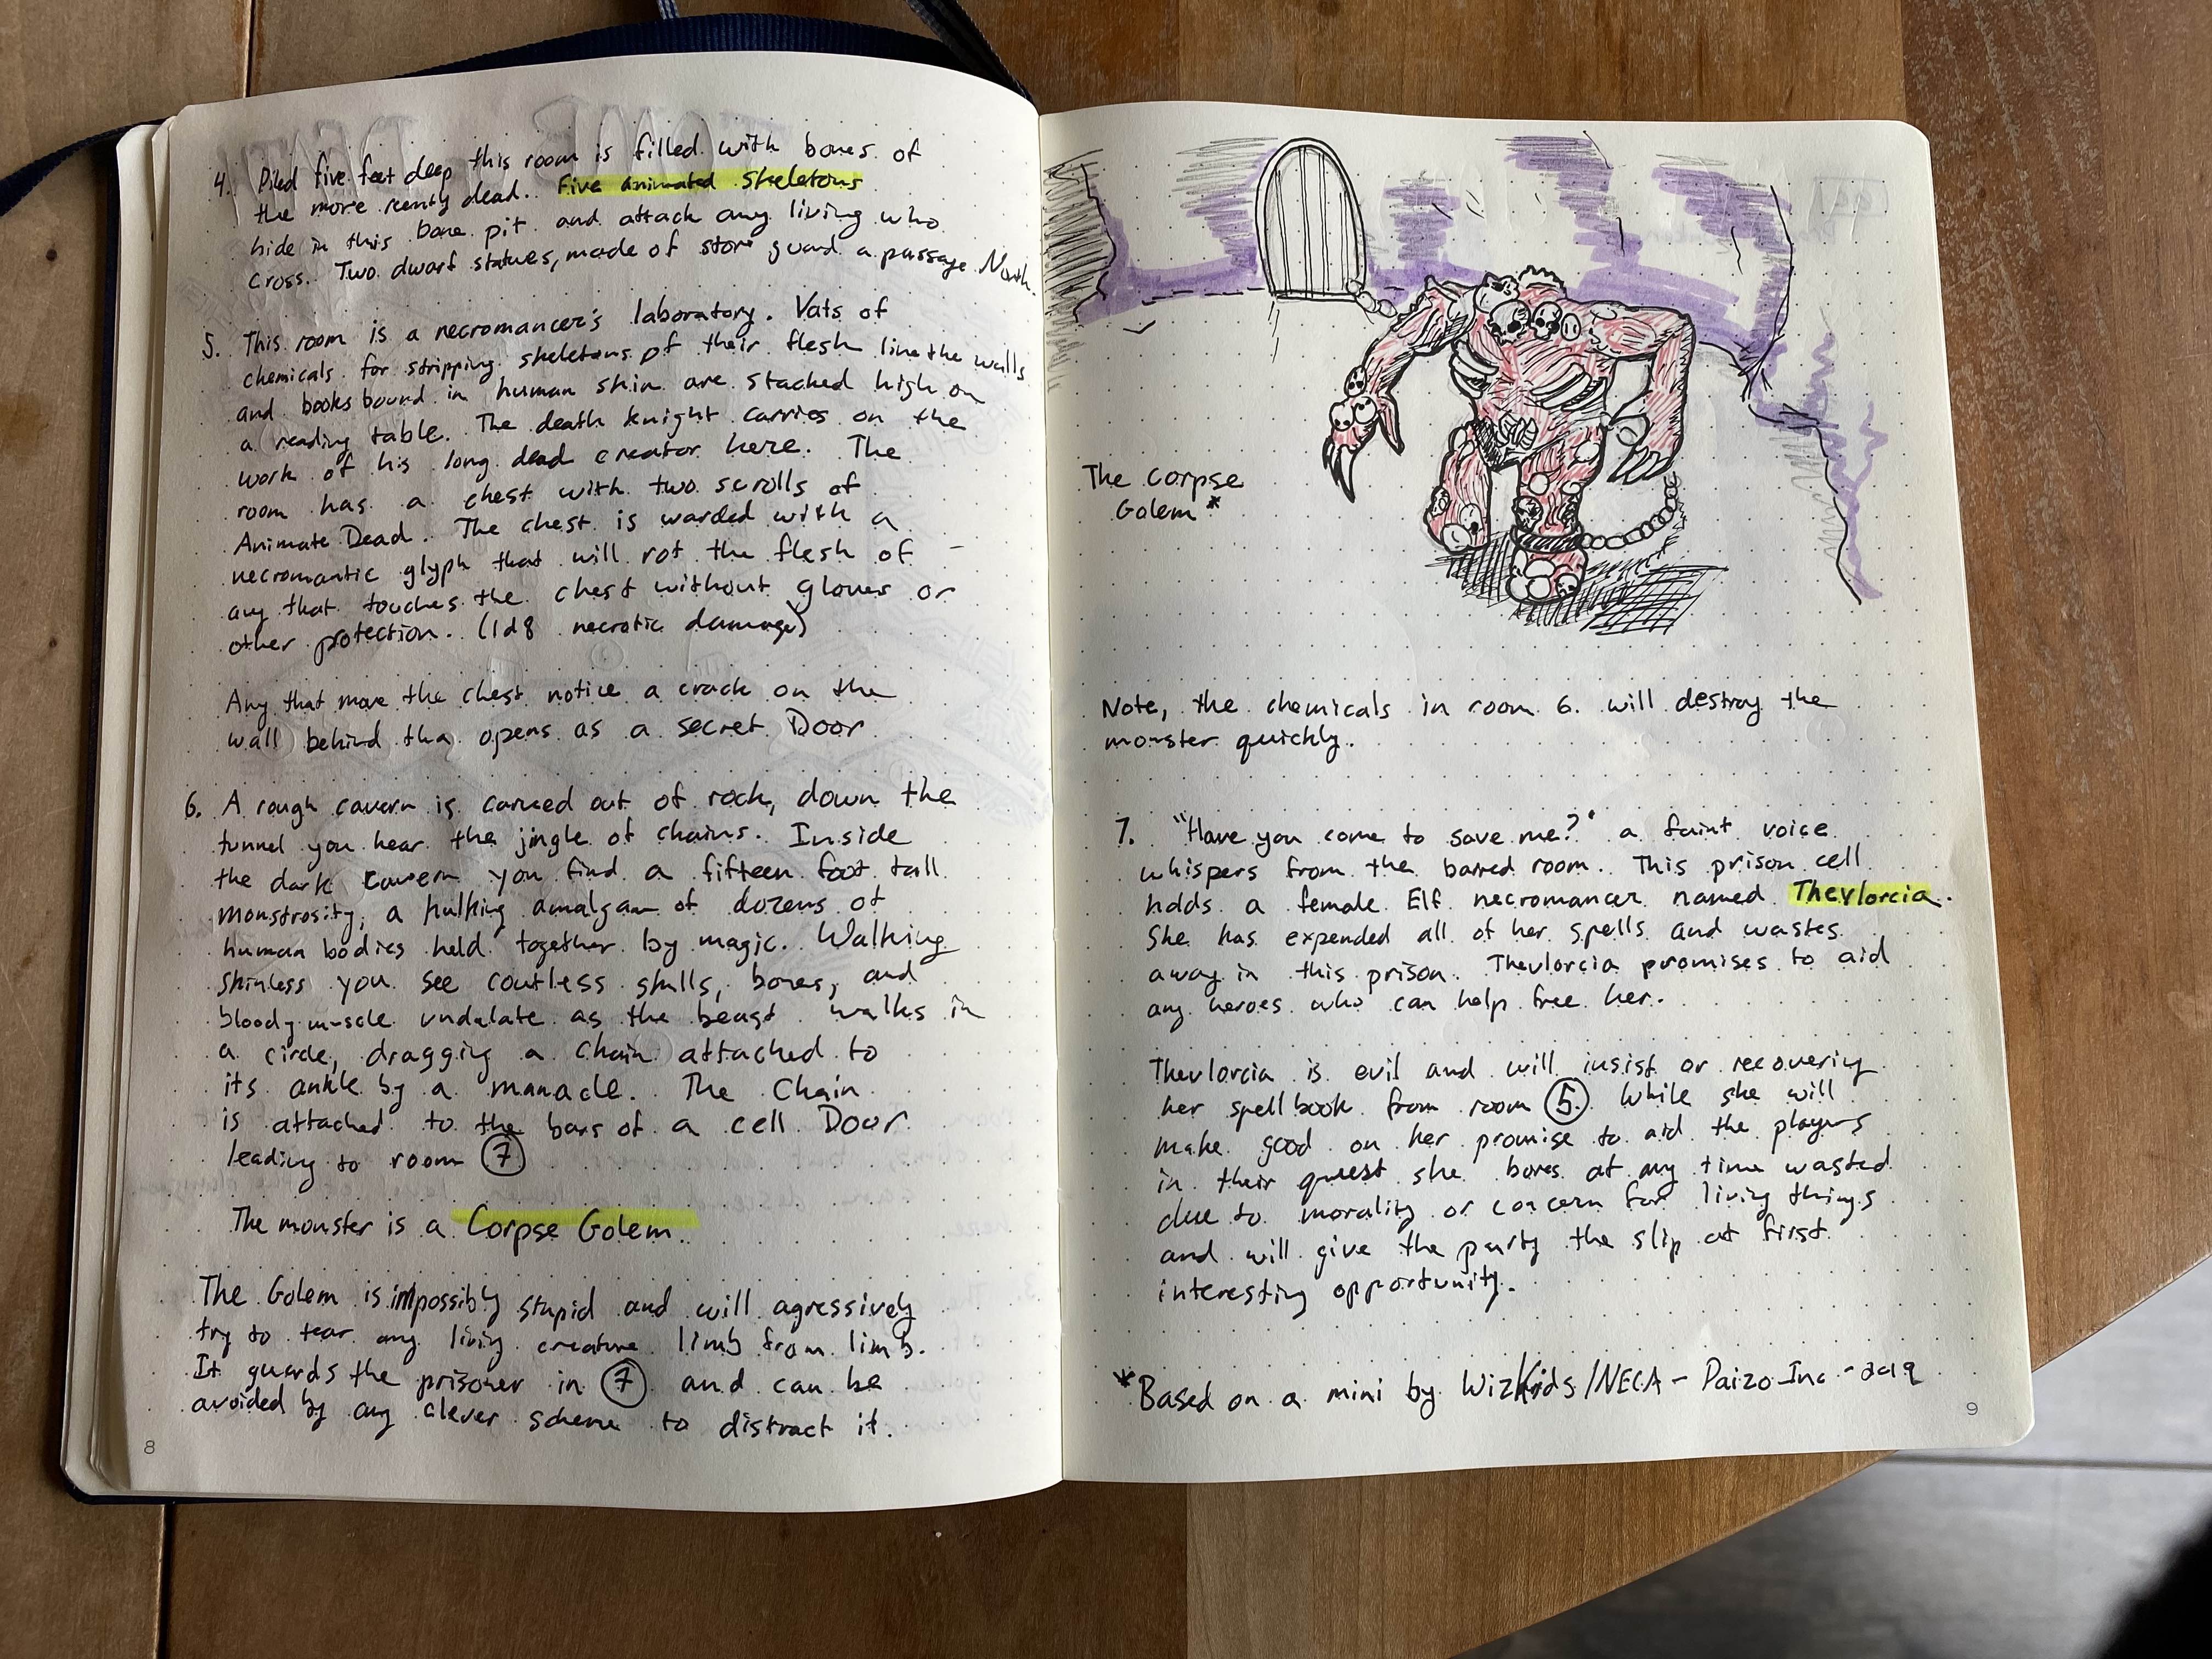 4. Piled five feet deep this room is filled with bones of
the more reently dead. Five animated skeletons
hide in this bone pit and attack any living who
cross. Two dwarf statues, made of stone guard a passage North.
5. This room is a necromancer's laboratory. Vats of
chemicals for stripping skeletons of their flesh line the walls
and books bound in human skin are stacked high on
a reading table. The death knight carries on the
work of his long dead creator here. The
room has a chest with two scrolls of
Animate Dead. The chest is warded with a
necromantic glyph that will rot the flesh of
any that touches the chest without gloves or
other protection. (1d8 necrotic damage)
Any that move the chest notice a crack on the
wall behind tha opens as a secret Door
6. A rough cavern is carved out of rock, down the
tunnel you hear the jingle of chains. Inside
the dark cavern you find a fifteen foot tall
monstrosity, a hulking amalgam of dozens of
human bodies held together by magic. Walking
skinless you see coutless skulls, bones, and
bloody muscle undulate as the beast walks in
a circle, dragging a chain attached to
its ankle by a manacle. The Chain
is attached to the bars of a cell Door
leading to room 7
The monster is a Corpse Golem.
The Golem is impossibly stupid and will agressively
try to tear any living creature limb from limb.
It guards the prisoner in 7 and can be
avoided by any clever scheme to distract it.
8
The Corpse
Golem *
Note, the chemicals in room 6. will destroy the
monster quickly.
7. "Have you come to save me?" a faint voice
whispers from the barred room. This prison cell
holds a female Elf necromancer named Thevlorcia.
She has expended all of her spells and wastes
away in this prison. Thevlorcia promises to aid
any heroes who can help free her.
Thevlorcia is evil and will insist or recovering
her spellbook from room 5. While she will
make good on her promise to aid the players
in their quest she bores at any time wasted
due to morality or concern for living things
and will give the party the slip at first
interesting opportunity.
* Based on a mini by WizKids/NECA - Paizo Inc - 2019
9